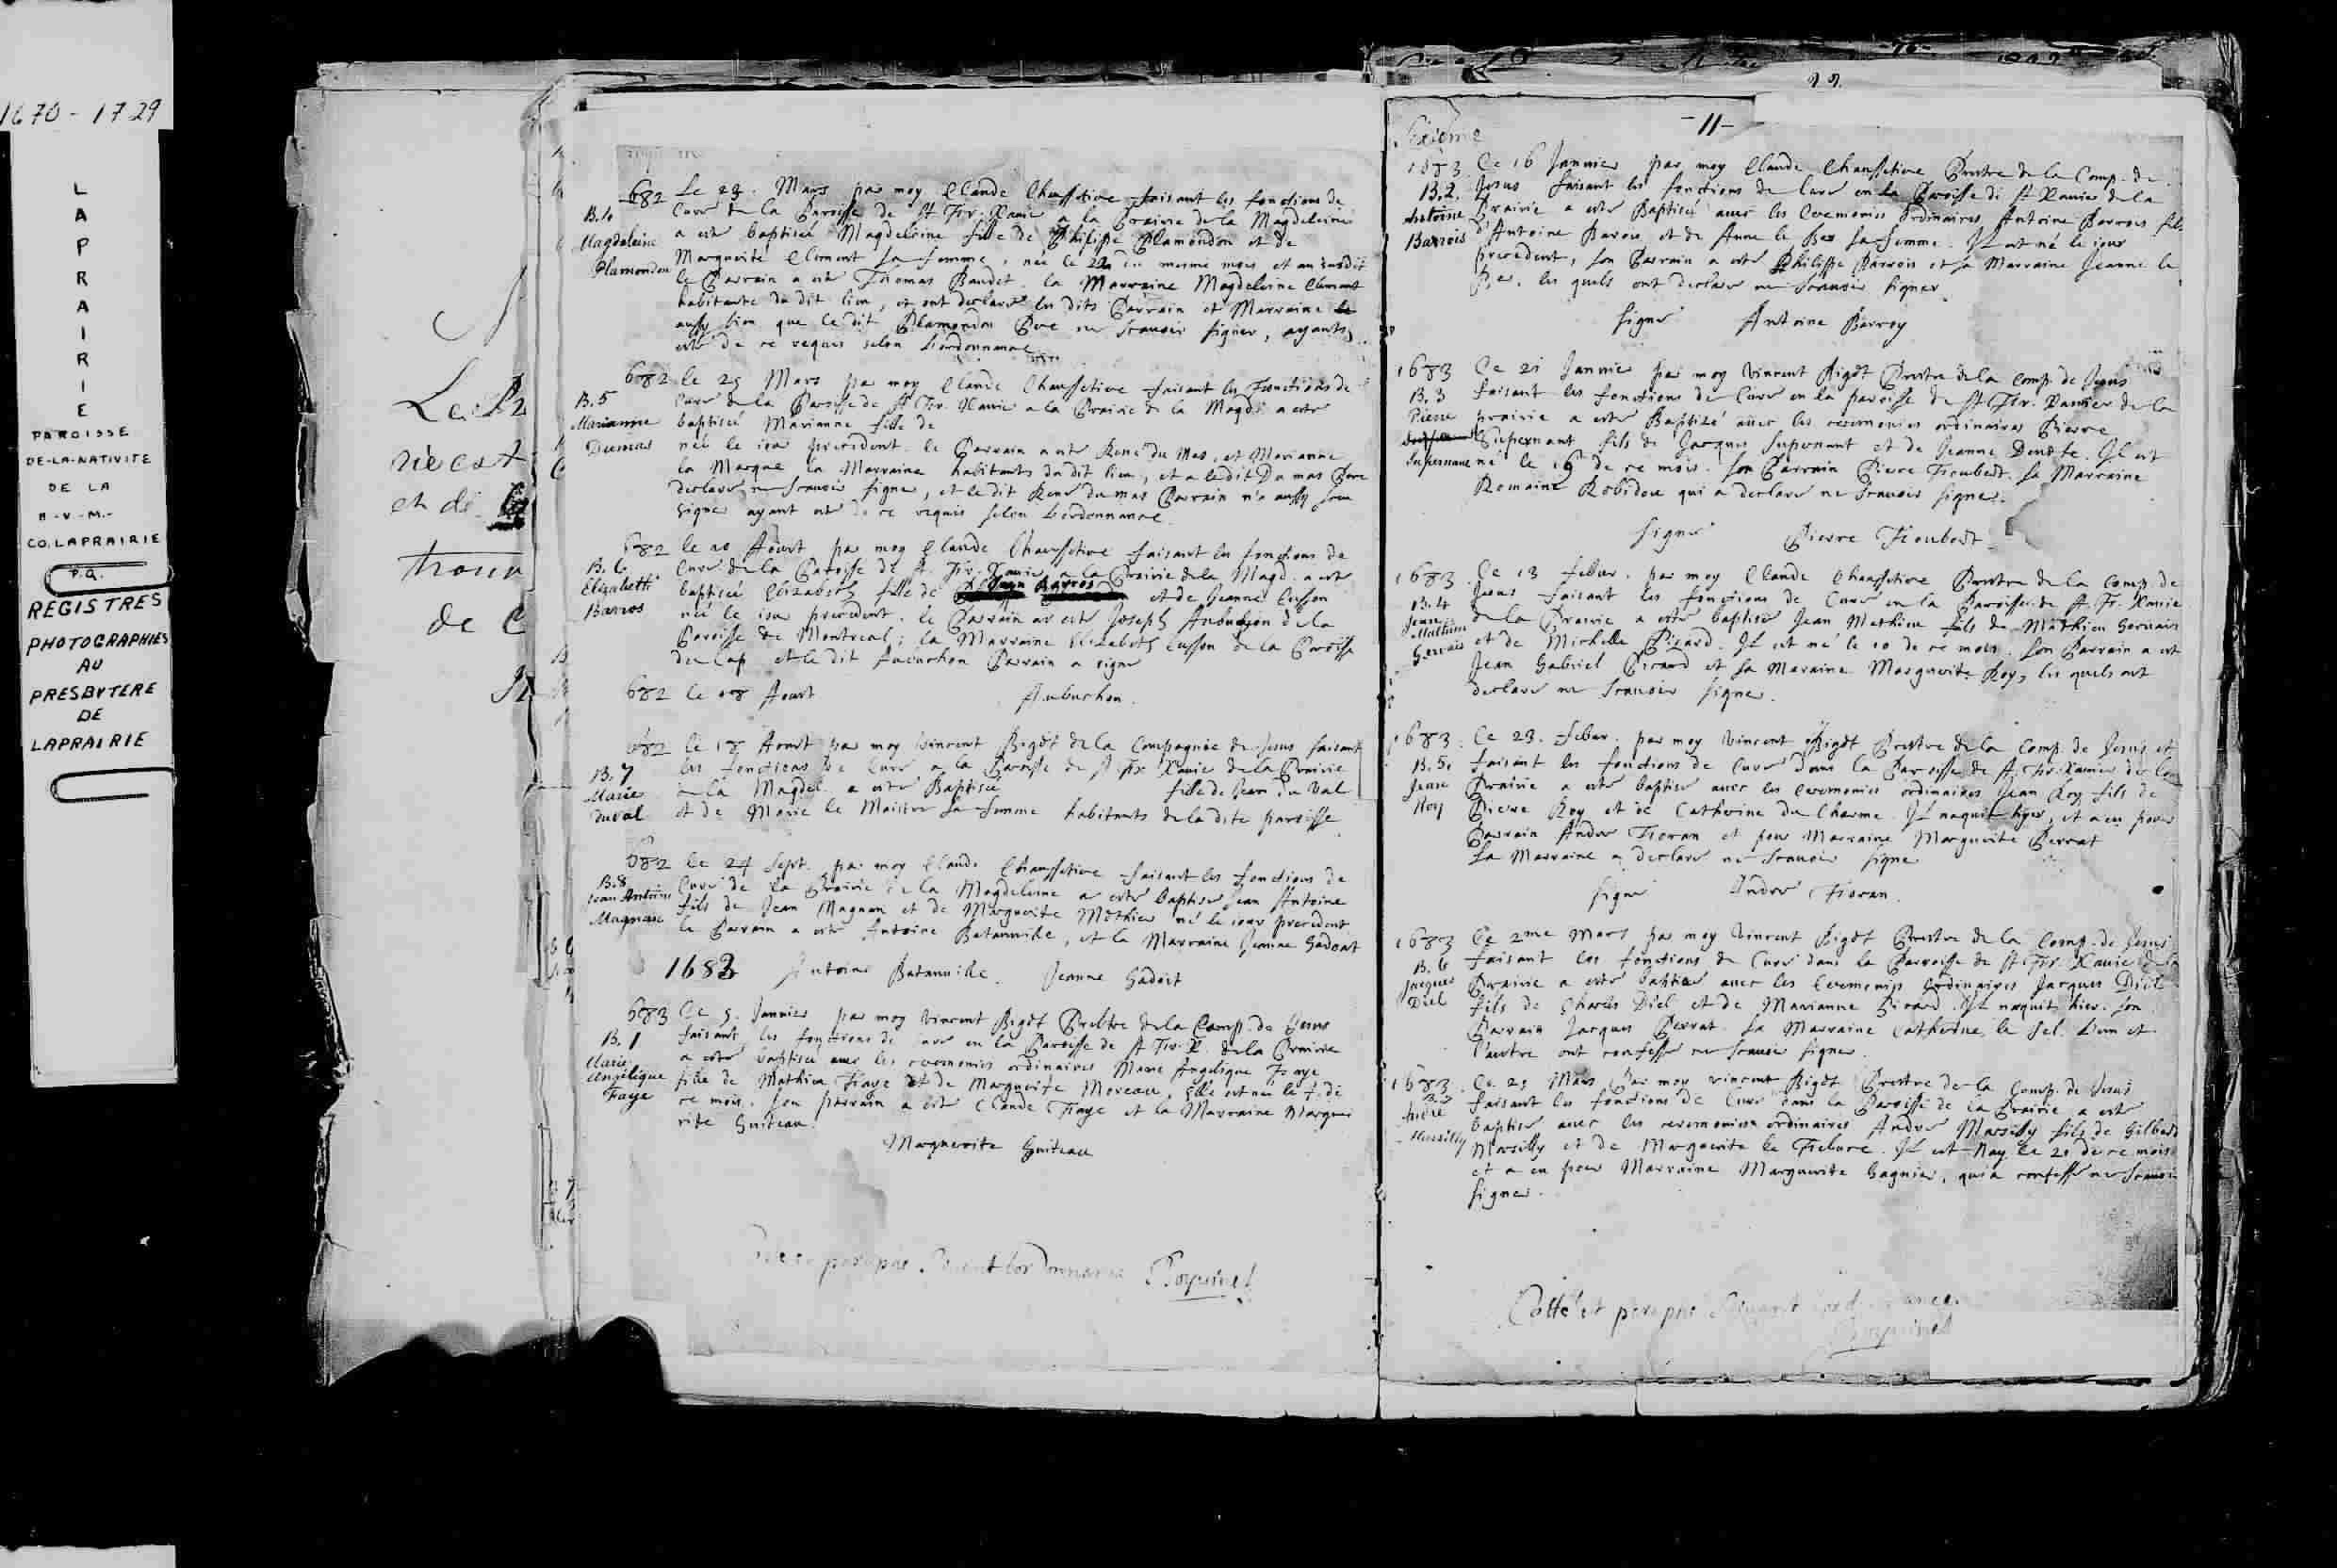 1670-1729
LAPRAIRIE
PAROISSE
DE-LA-NATIVITE
DE LA
B-V-M.-
CO. LAPRAIRIE
P.Q.
REGISTRES
PHOTOGRAPHIES
AU
PRESBYTERE
DE
LAPRAIRIE
et de
de C
682 Le 23. Mars par moy Claude Chauffetiere faisant les fonctions de
B.4 Curé de la Paroisse de St Fr. Xavie a la Prairie de la Magdeleine
Magdeleine a esté baptisée Magdeleine fille de Philippe Plamondon et de
Plamondon Marguerite Clement sa femme, née le 22 du mesme mois et an susdit
le Parrain a esté Thomas Baudet. la Marraine Magdeleine Clement
habitante du dit lieu, et ont declaré les dits Parrain et Marraine
aussy bien que le dit Plamondon Pere ne scavoir signer, ayants
esté de ce requis selon l'ordonnance
682 le 25 Mars par moy Claude Chauffetiere faisant les fonctions de
B.5 Curé de la Paroisse de St Fr. Xavie a la Prairie de la Magd. a esté
Marianne baptisée Marianne fille de
Dumas née le iour precedent. le Parrain a esté René du Mas, et Marianne
la Marque la Marraine habitants du dit lieu, et a ledit Du mas Pere
declaré ne scavoir signer, et le dit René dumas Parrain n'a aussy sceu
signer ayant esté de ce requis selon l'ordonnance
682 le 10 Aoust par moy Claude Chauffetiere faisant les fonctions de
B.6 Curé de la Paroisse de St Fr. Xavie a la Prairie de la Magd. a esté
Elizabeth baptisée Elizabeth fille de et de Jeanne Cusson
Barros née le iour precedent. le Parrain a esté Joseph Aubuchon de la
Paroisse de Montreal; la Marraine Elizabeth Cusson de la Paroisse
du Cap et le dit Aubuchon Parrain a signé
682 le 18 Aoust Aubuchon.
682 le 18 Aoust par moy Vincent Bigot de la Compagnie de Jesus faisant
B.7 les fonctions de Curé a la Paroisse de St Fr. Xavie de la Prairie
Marie de la Magdel. a esté Baptisée fille de Jean du Val
duval et de Marie le Maistre sa femme habitants de la dite paroisse
682 le 24 Sept. par moy Claude Chauffetiere faisant les fonctions de
B.8 Curé de la Prairie de la Magdeleine a esté baptisé Jean Antoine
Jean Antoine fils de Jean Magnan et de Marguerite Mothier né le iour precedent
Magnan le Parrain a esté Antoine Batanville, et la Marraine Jeanne Gadoit
1683 Antoine Batanville. Jeanne Gadoit
683 Ce 9. Janvier par moy Vincent Bigot Prestre de la Comp. de Jesus
B.1 faisant les fonctions de curé en la Paroisse de St Fr. X. de la Prairie
Marie a esté baptisée avec les ceremonies ordinaires Marie Angelique Faye
Angélique fille de Mathieu Faye et de Marguerite Moreau, Elle est née le 7. de
Faye ce mois. son parrain a esté Claude Faye et la Marraine Margue
rite Guiteau
Marguerite Guiteau
-11-
1683 Ce 16 Janvier par moy Claude Chauffetiere Prestre de la Comp. de
B.2. Jesus faisant les fonctions de Curé en la Paroisse de St Xavier de la
Antoine Prairie a esté Baptisé avec les Ceremonies ordinaires, Antoine Barrois fils
Barrois d'Antoine Barrois et de Anne le Ber sa femme. Il est né le iour
precedent, son Parrain a esté Philippe Barrois et sa Marraine Jeanne le
Ber. les quels ont declaré ne scavoir signer.
Signé Antoine Barroy
1683 Ce 21 Janvier par moy Vincent Bigot Prestre de la Comp. de Jesus
B.3 faisant les fonctions de Curé en la paroisse de St Fr. Xavier de la
Pierre prairie a esté Baptizé avec les ceremonies ordinaires Pierre
Supernant Supernant fils de Jacques Supernant et de Jeanne Denote. Il est
né le 19 de ce mois. son Parrain Pierre Tioubert. sa Marraine
Romaine Robidou qui a declaré ne scavoir signer.
Signé Pierre Tioubert
1683. Ce 13 febur. par moy Claude Chauffetiere Prestre de la Comp. de
B.4 Jesus faisant les fonctions de Curé en la Paroisse de St Fr. Xavie
Jean de la Prairie a esté baptisé Jean Mathieu fils de Mathieu Gervais
Mathieu et de Michelle Picard. Il est né le 10 de ce mois. Son Parrain a esté
Gervais Jean Gabriel Picard et sa Maraine Marguerite Roy, les quels ont
declaré ne scavoir signer.
1683. Ce 23. febur. par moy Vincent Bigot Prestre de la Comp. de Jesus et
B.5. faisant les fonctions de Curé dans la Paroisse de St Fr. Xavier de la
Jean Prairie a esté baptisé avec les ceremonies ordinaires Jean Roy fils de
Roy Pierre Roy et de Catherine du Charme. Il naquit hyer, et a eu pour
Parrain André Foran et pour Marraine Marguerite Perrat
La Marraine a declaré ne scavoir signer
signé André Foran.
1683 Ce 2me Mars par moy Vincent Bigot Prestre de la Comp. de Jesus
B.6 faisant les fonctions de Curé dans la Parroisse de St Fr. Xavie de la
Jacques Prairie a esté baptisé avec les Ceremonies ordinaires Jacques Diel
Diel fils de Charles Diel et de Marianne Picard. Il naquit hier. Son
Parrain Jacques Perrat. La Marraine Catherine le Sel. L'un et
l'autre ont confessé ne scavoir signer.
1683. Ce 25 Mars Par moy Vincent Bigot Prestre de la Comp. de Jesus
faisant les fonctions de Curé dans la Paroisse de la Prairie a esté
André baptisé avec les ceremonies ordinaires André Marsilly fils de Gilbert
Marsilly Marsilly et de Marguerite le Febure. Il est Nay le 21 de ce mois
et a eu pour Marraine Marguerite Gagnier, qui a confessé ne scavoir
signer.